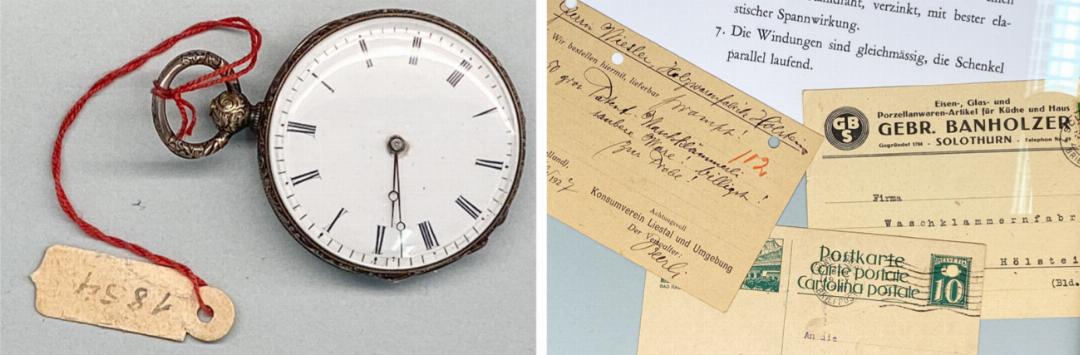 1854
stischer Spannwirkung.
7. Die Windungen sind gleichmässig, die Schenkel
parallel laufend.
Herrn Wiesler Holzwarenfabrik Hölstein
Wir bestellen hiermit, lieferbar prompt!
Patent
saubere Ware! billigst!
zur Probe!
112
Achtungsvoll
Konsumverein Liestal und Umgebung
Der Verwalter:
Eisen-, Glas- und
Porzellanwaren-Artikel für Küche und Haus
GBS
GEBR. BANHOLZER
Gegründet 1764 - SOLOTHURN - Telephon
Firma
Waschklammernfabr
Hölstei
(Bld.
Postkarte
Carte postale
Cartolina postale
HELVETIA
10
An die